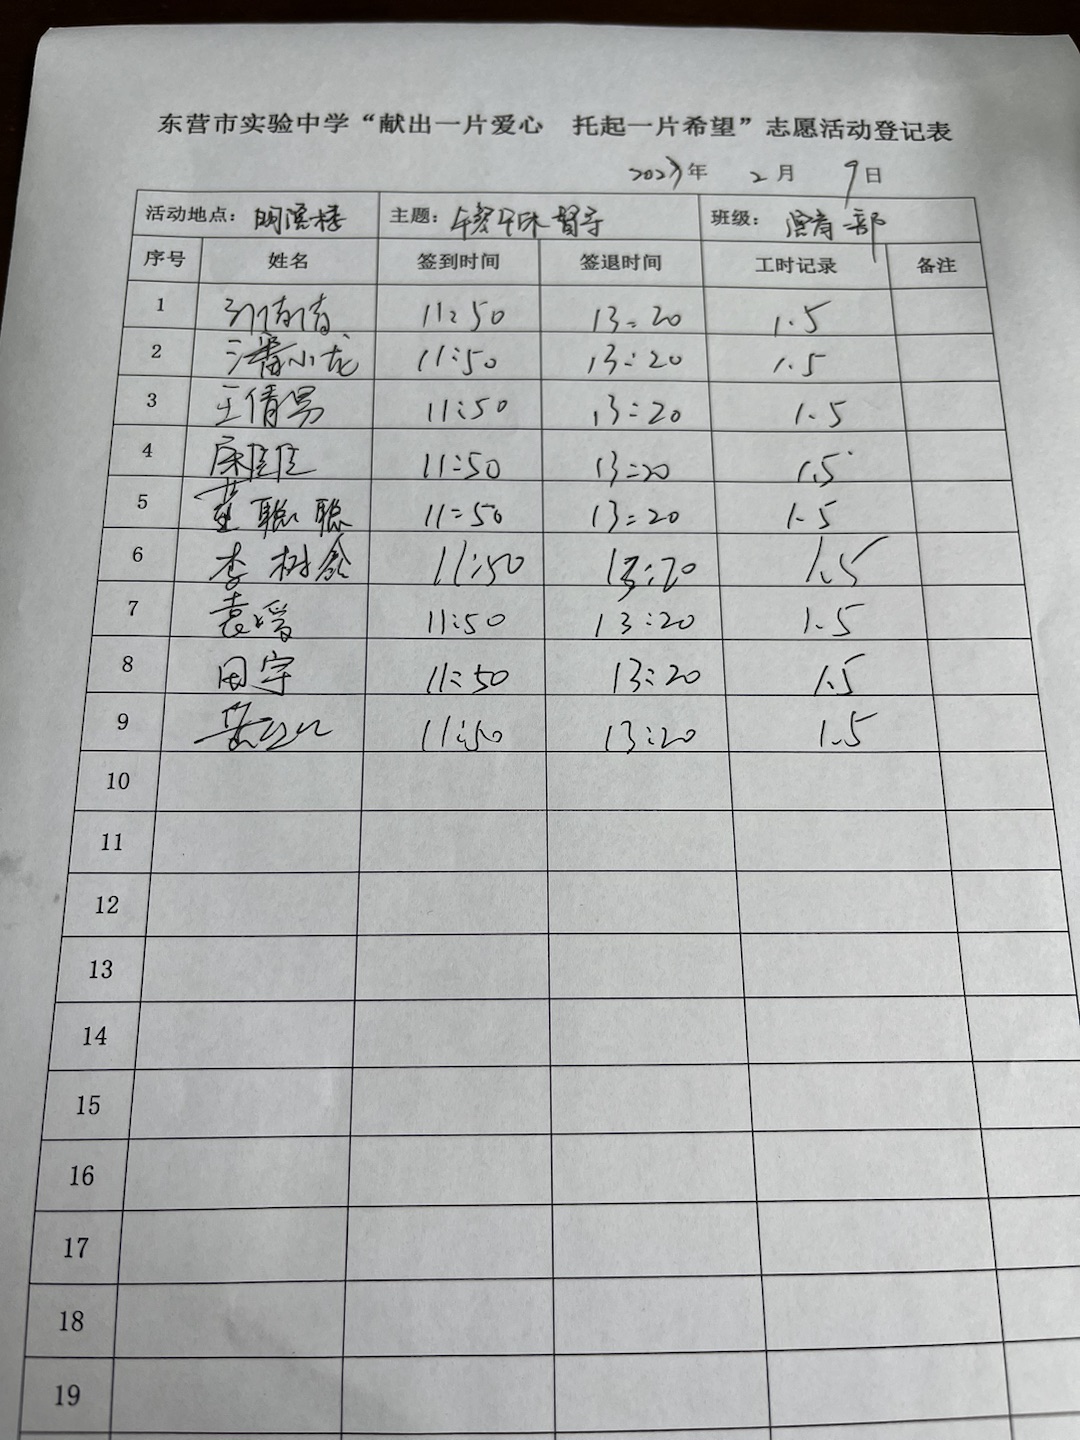 东营市实验中学“献出一片爱心 托起一片希望”志愿活动登记表
2023年 2月 9日
活动地点：明德楼 主题：午餐午休督导 班级：德育部
序号 姓名 签到时间 签退时间 工时记录 备注
1 11:50 13:20 1.5
2 潘小龙 11:50 13:20 1.5
3 王倩男 11:50 13:20 1.5
4 11:50 13:20 1.5
5 董聪聪 11:50 13:20 1.5
6 李树鑫 11:50 13:20 1.5
7 袁媛 11:50 13:20 1.5
8 田宇 11:50 13:20 1.5
9 11:50 13:20 1.5
10
11
12
13
14
15
16
17
18
19